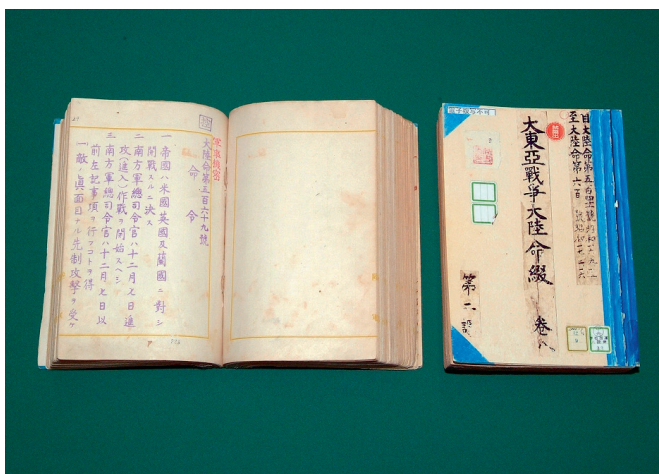 軍事機密
大陸命第五百六十九號
命令
一 帝國ハ米國英國及蘭國ニ對シ
開戰スルニ決ス
二 南方軍總司令官ハ十二月 日進
攻(進入)作戰ヲ開始スヘシ
三 南方軍總司令官ハ十二月 日以
前左記事項ヲ行フコトヲ得
1 敵ノ眞面目ナル先制攻擊ヲ受ケ
自大陸命第五百
至大陸命第六百
大東亞戰爭大陸命綴 卷八
第二